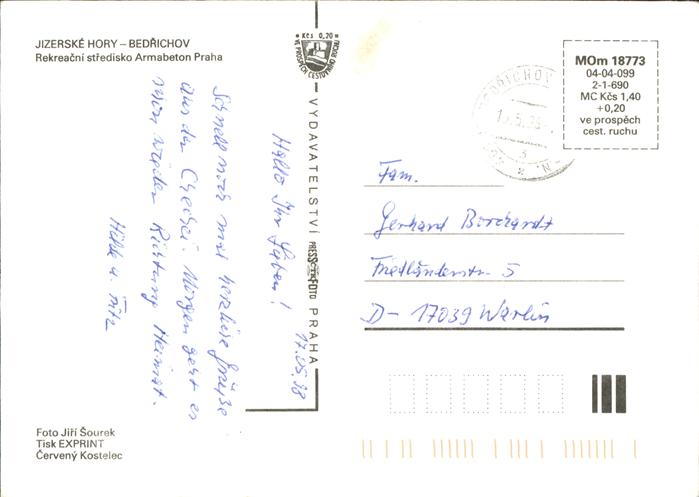 JIZERSKÉ HORY – BEDŘICHOV
Rekreační středisko Armabeton Praha
Kčs 0,20
VE PROSPĚCH CESTOVNÍHO RUCHU
MOm 18773
04-04-099
2-1-690
MC Kčs 1,40
+0,20
ve prospěch
cest. ruchu
BEDŘICHOV
VYDAVATELSTVÍ PRESSFOTO PRAHA
17.05.98
Hallo Ihr Lieben!
Schnell noch mal herzliche Grüße
aus der Chechei. Morgen geht es
nun wieder Richtung Heimat.
Hilde u. Fritz
Fam.
Gerhard Borchardt
Friedländerstr. 5
D-17039 Warlin
Foto Jiří Šourek
Tisk EXPRINT
Červený Kostelec